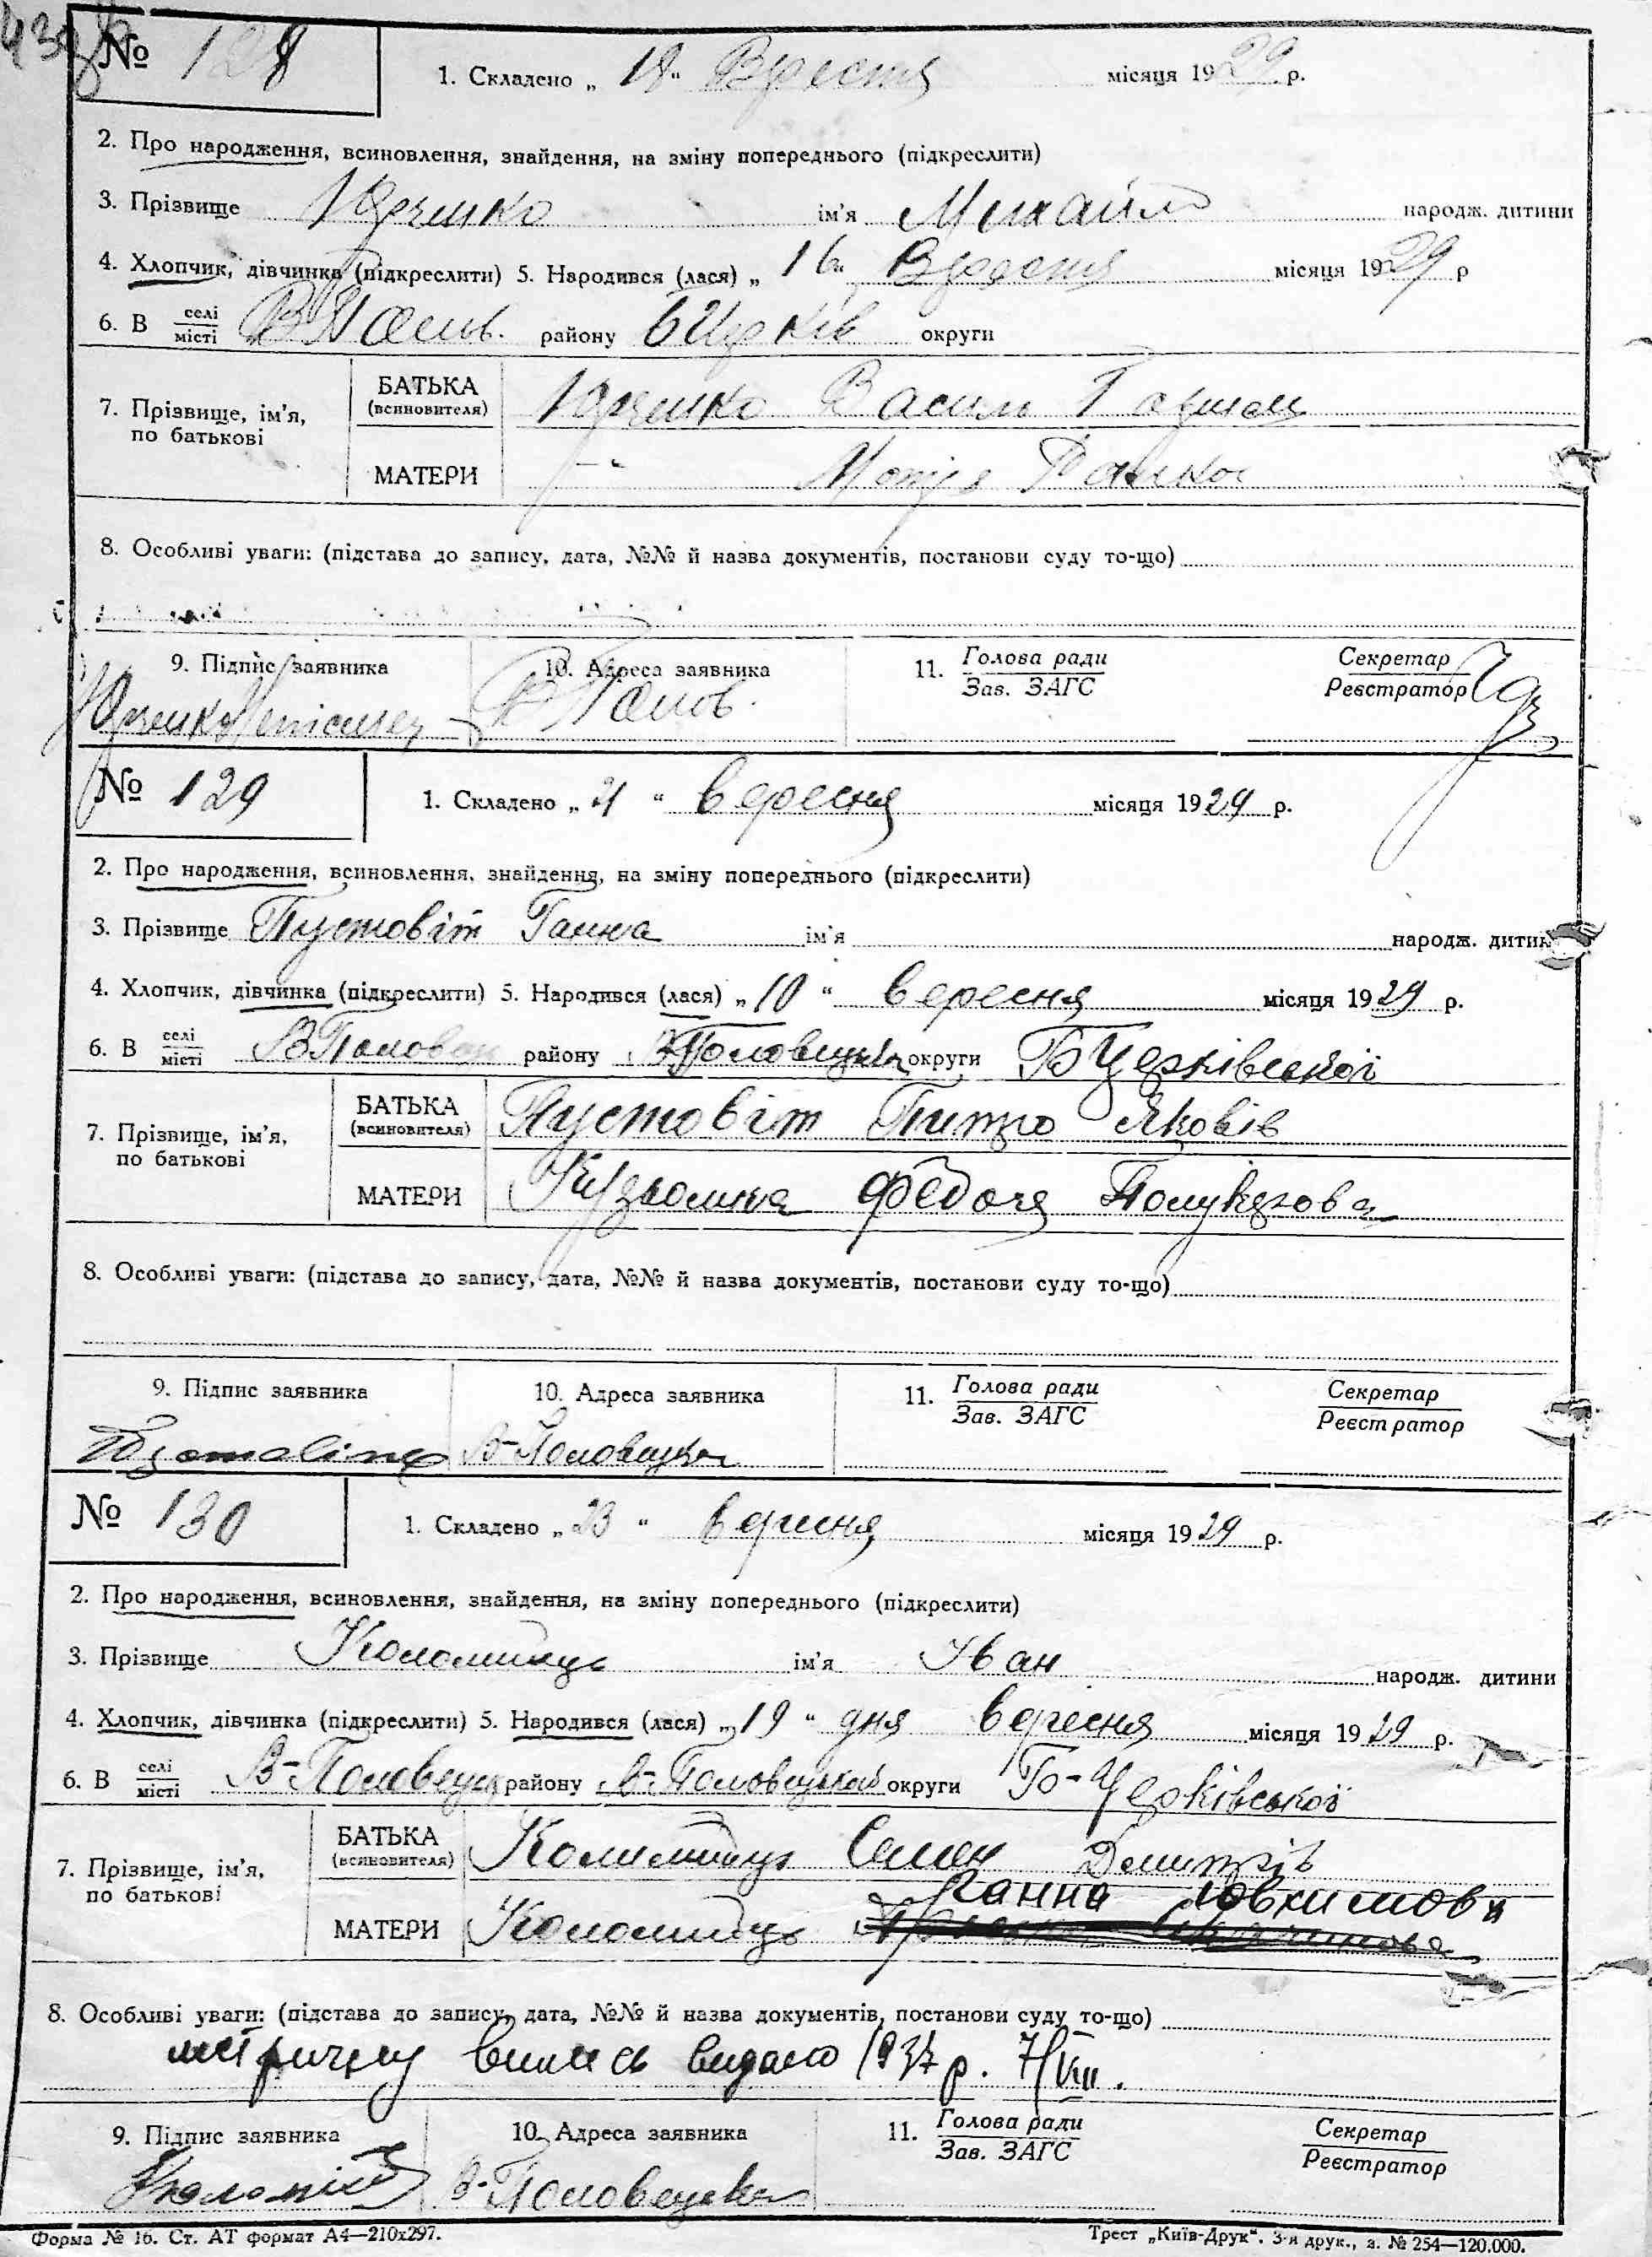 № 128
1. Складено „ 18 “ Вересня місяця 1929 р.
2. Про народження, всиновлення, знайдення, на зміну попереднього (підкреслити)
3. Прізвище Юрченко ім'я Михайло народж. дитини
4. Хлопчик, дівчинка (підкреслити) 5. Народився (лася) „ 16 “ Вересня місяця 1929 р
6. В селі місті В Полов. району БЦерків округи
7. Прізвище, ім'я, по батькові
БАТЬКА (всиновителя) Юрченко Василь
МАТЕРИ -"-
8. Особливі уваги: (підстава до запису, дата, №№ й назва документів, постанови суду то-що)
9. Підпис заявника 10. Адреса заявника 11. Голова ради Зав. ЗАГС Секретар Реєстратор
Юрченко В Полов.
№ 129
1. Складено „ 21 “ вересня місяця 1929 р.
2. Про народження, всиновлення, знайдення, на зміну попереднього (підкреслити)
3. Прізвище Пустовіт Ганна ім'я народж. дитин
4. Хлопчик, дівчинка (підкреслити) 5. Народився (лася) „ 10 “ вересня місяця 1929 р.
6. В селі місті В Половец району В Половецьк округи Б Церківської
7. Прізвище, ім'я, по батькові
БАТЬКА (всиновителя) Пустовіт Питро Яковів
МАТЕРИ Федося
8. Особливі уваги: (підстава до запису, дата, №№ й назва документів, постанови суду то-що)
9. Підпис заявника 10. Адреса заявника 11. Голова ради Зав. ЗАГС Секретар Реєстратор
В-Половецьк
№ 130
1. Складено „ 23 “ вересня місяця 1929 р.
2. Про народження, всиновлення, знайдення, на зміну попереднього (підкреслити)
3. Прізвище Коломиець ім'я Іван народж. дитини
4. Хлопчик, дівчинка (підкреслити) 5. Народився (лася) „ 19 “ дня вересня місяця 1929 р.
6. В селі місті В-Половецк району В-Половецькой округи Б-Церківської
7. Прізвище, ім'я, по батькові
БАТЬКА (всиновителя) Коломиець Семен Дмитрів
ГаннаЮвхимов а
МАТЕРИ Коломиець
8. Особливі уваги: (підстава до запису, дата, №№ й назва документів, постанови суду то-що)
метричну випись видано 1937 р. 7/VIII.
9. Підпис заявника 10. Адреса заявника 11. Голова ради Зав. ЗАГС Секретар Реєстратор
Коломієц В-Половецька
Форма № 16. Ст. АТ формат А4—210х297. Трест „Київ-Друк“. 3-я друк., з. № 254—120.000.